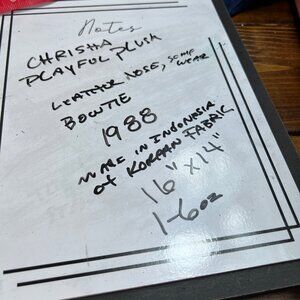 Notes
CHRISHA
PLAYFUL PLUSH
LEATHER NOSE, SOME WEAR
BOWTIE
1988
MADE IN INDONESIA
OF KOREAN FABRIC
16" x 14"
1-6oz